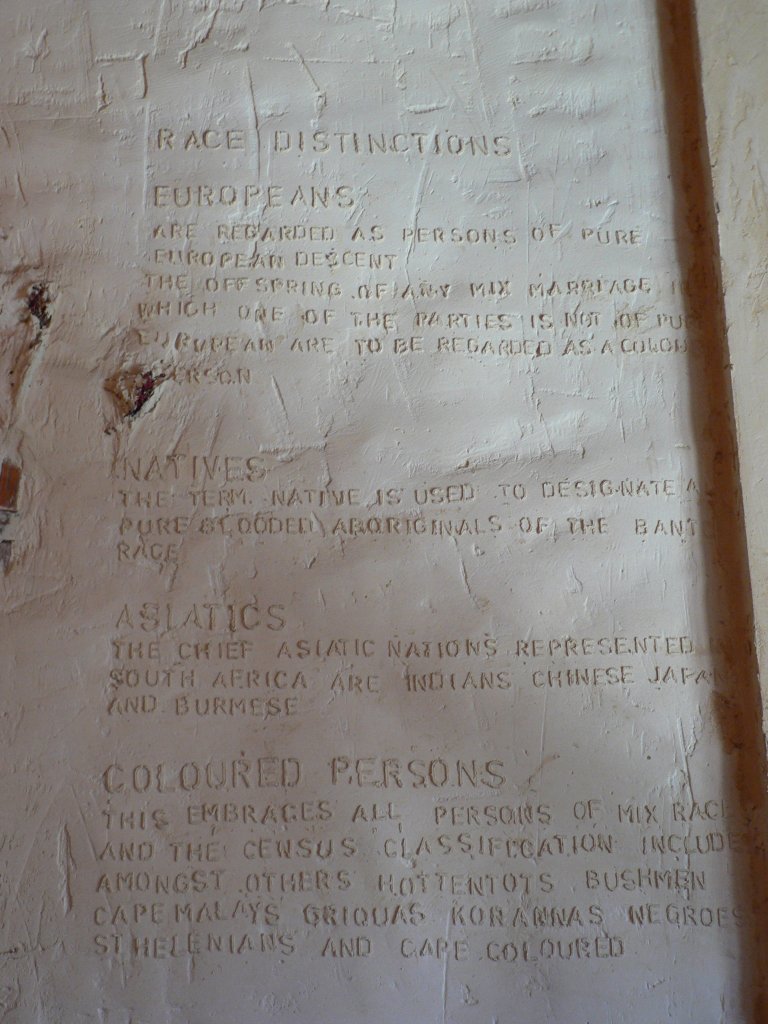 RACE DISTINCTIONS
EUROPEANS
ARE REGARDED AS PERSONS OF PURE
EUROPEAN DESCENT
THE OFFSPRING OF ANY MIX MARRIAGE
WHICH ONE OF THE PARTIES IS NOT OF
EUROPEAN ARE TO BE REGARDED AS A
NATIVES
THE TERM NATIVE IS USED TO DESIGNATE
PURE BLOODED ABORIGINALS OF THE
RACE
ASIATICS
THE CHIEF ASIATIC NATIONS REPRESENTED
SOUTH AFRICA ARE INDIANS CHINESE
AND BURMESE
COLOURED PERSONS
THIS EMBRACES ALL PERSONS OF MIX
AND THE CENSUS CLASSIFICATION INCLUDE
AMONGST OTHERS HOTTENTOTS BUSHMEN
CAPE MALAYS GRIQUAS KORANNAS NEGROES
ST HELENIANS AND CAPE COLOURED